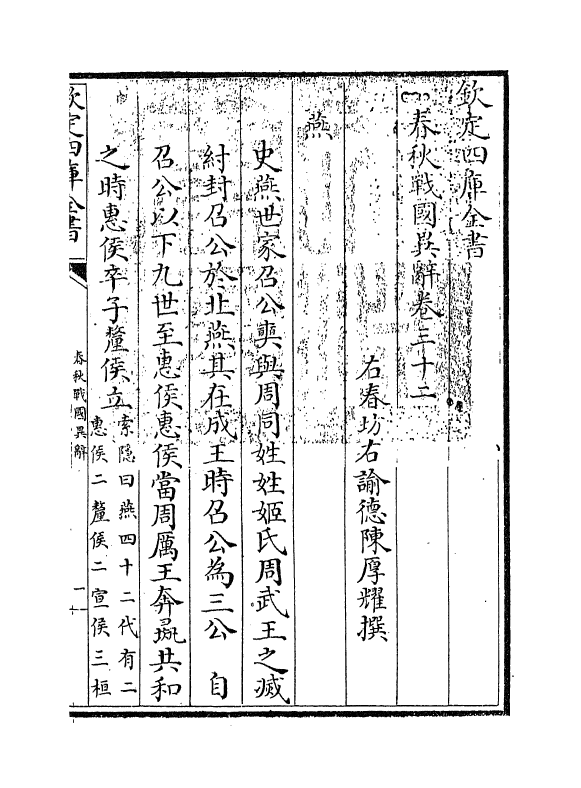 欽定四庫全書
春秋戰國異辭卷三十二
右春坊右諭德陳厚耀撰
燕
史燕世家召公奭與周同姓姓姬氏周武王之滅
紂封召公於北燕其在成王時召公為三公　自
召公以下九世至惠侯惠侯當周厲王奔彘共和
之時惠侯卒子釐侯立
索隐曰燕四十二代有二
惠侯二釐侯二宣侯三桓
欽定四庫全書
春秋戰國異辭
一